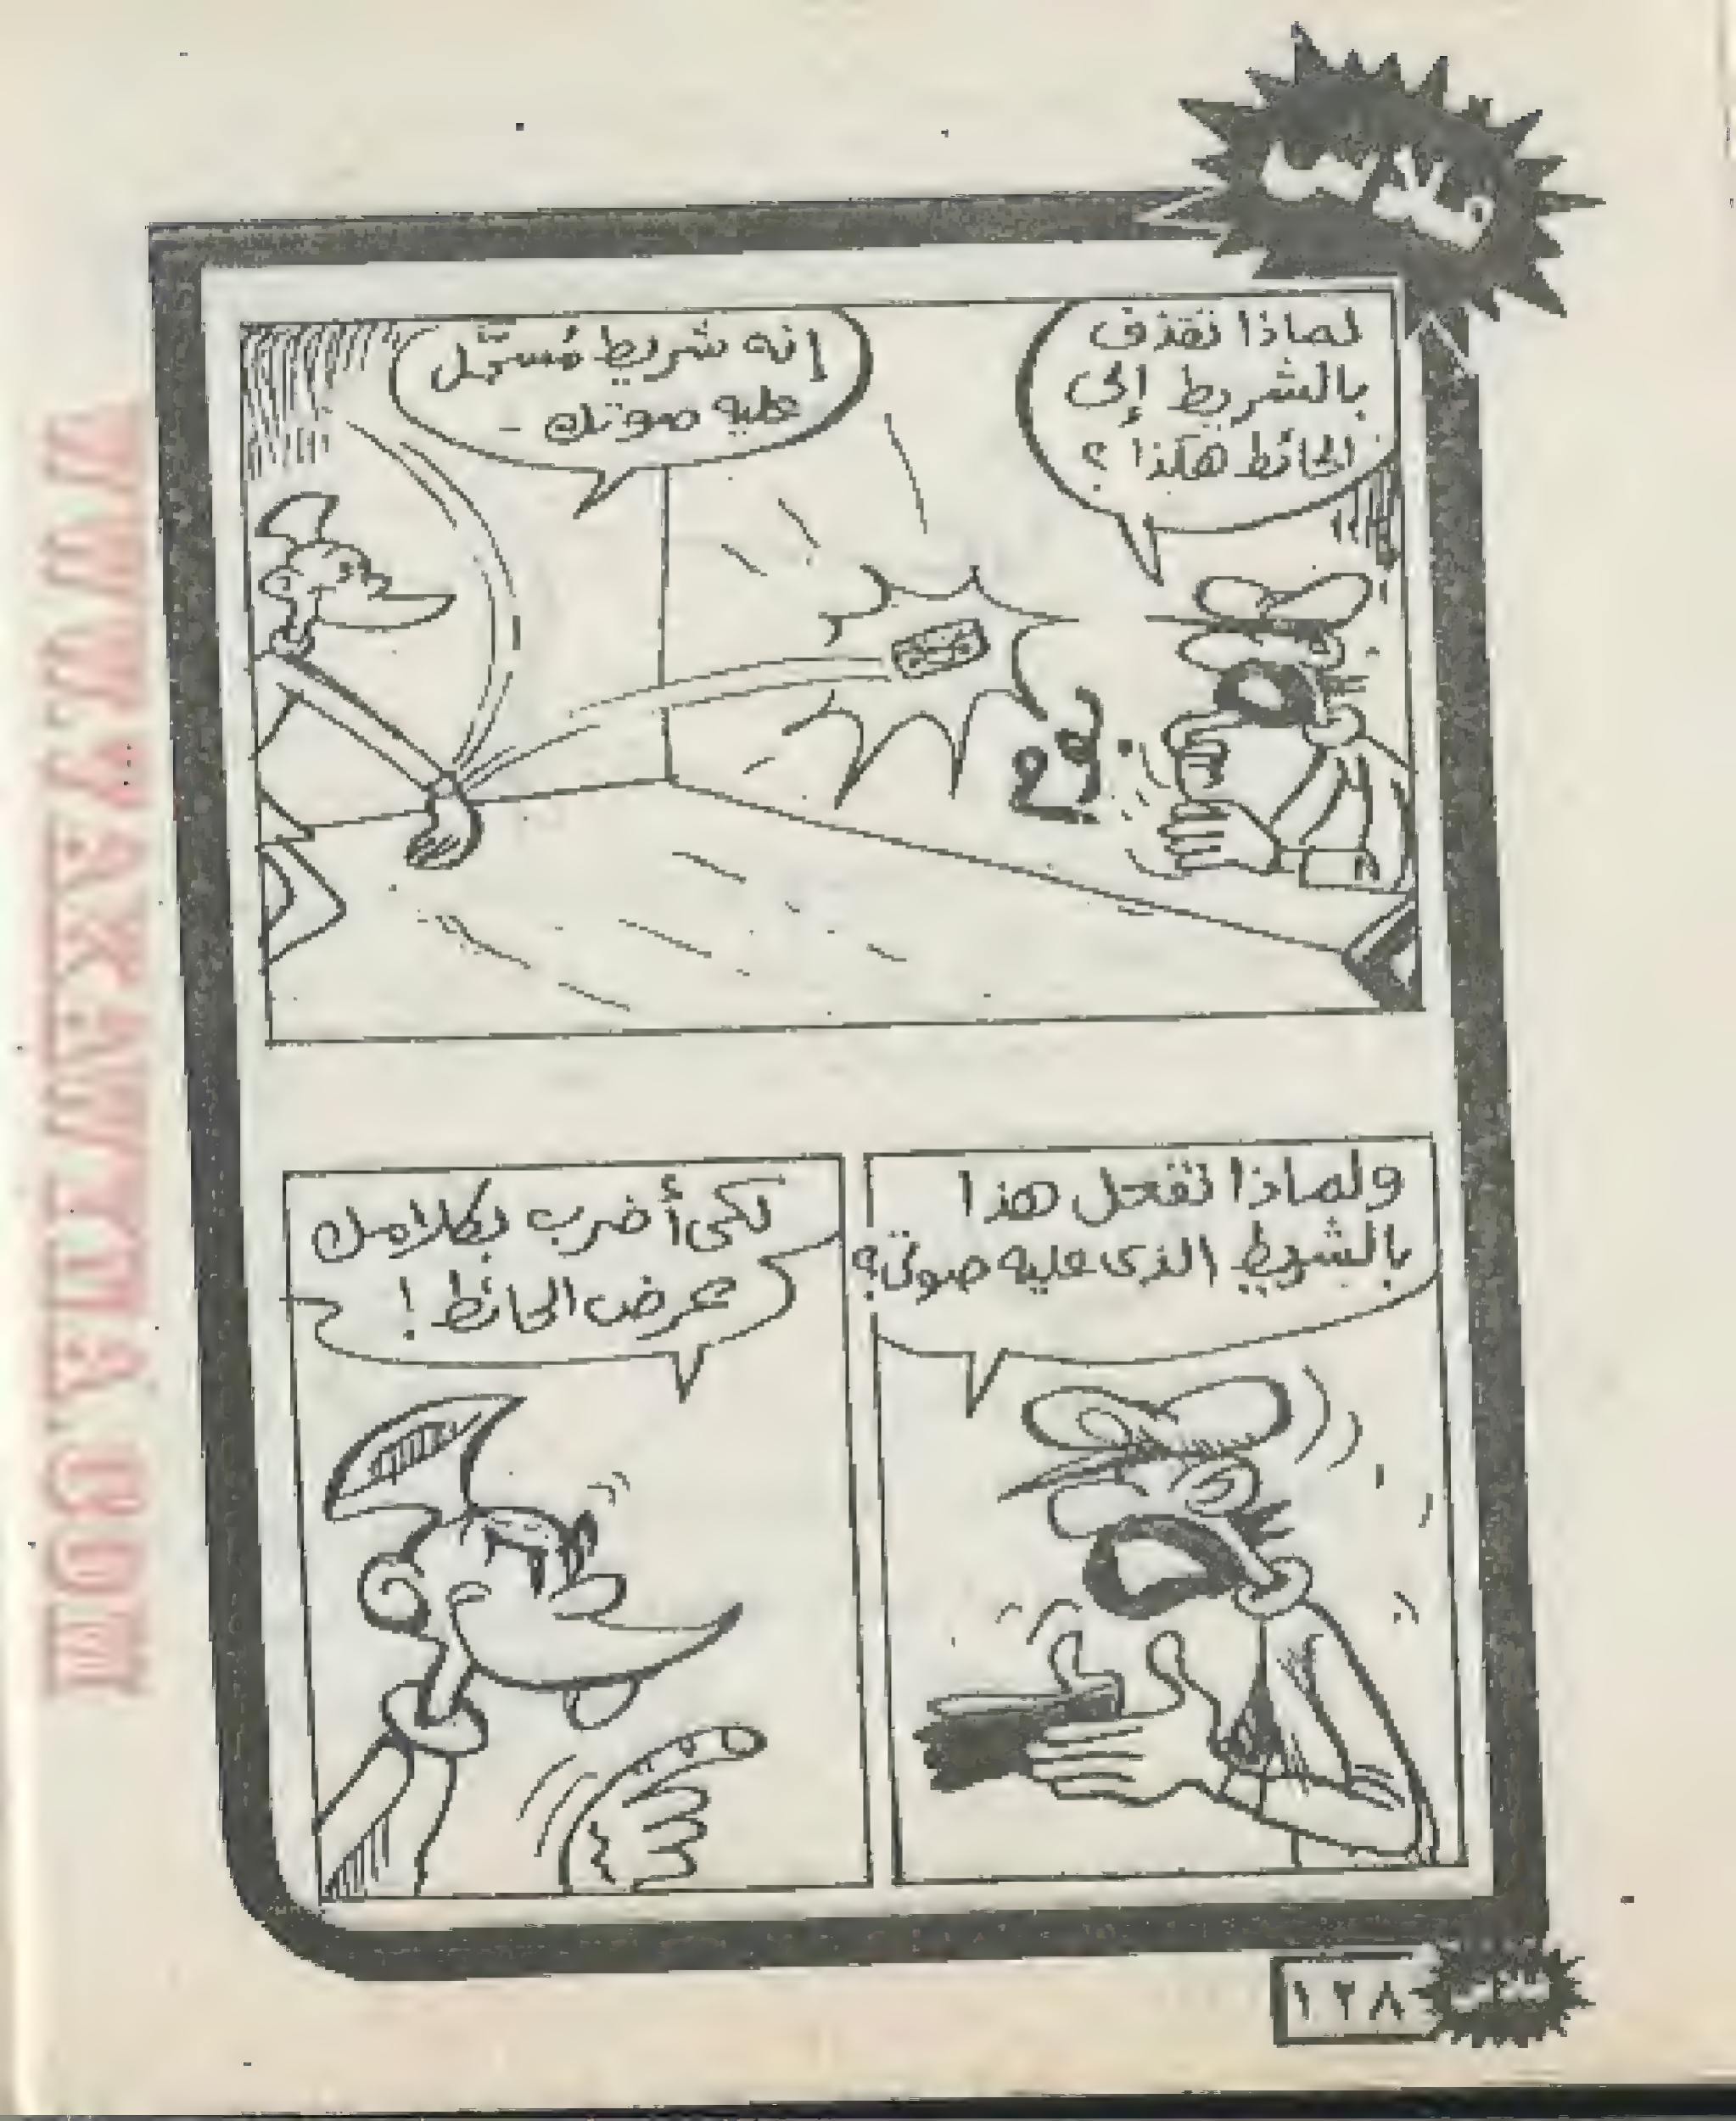 فلاش
لماذا تقذف
بالشريط إلى
الحائط هكذا ؟
إنه شريط مُسجّل
عليه صوتك -
ولماذا تفعل هذا
بالشريط الذى عليه صوتى؟
لكى أضرب بكلامك
عرض الحائط !
١٢٨
فلاش